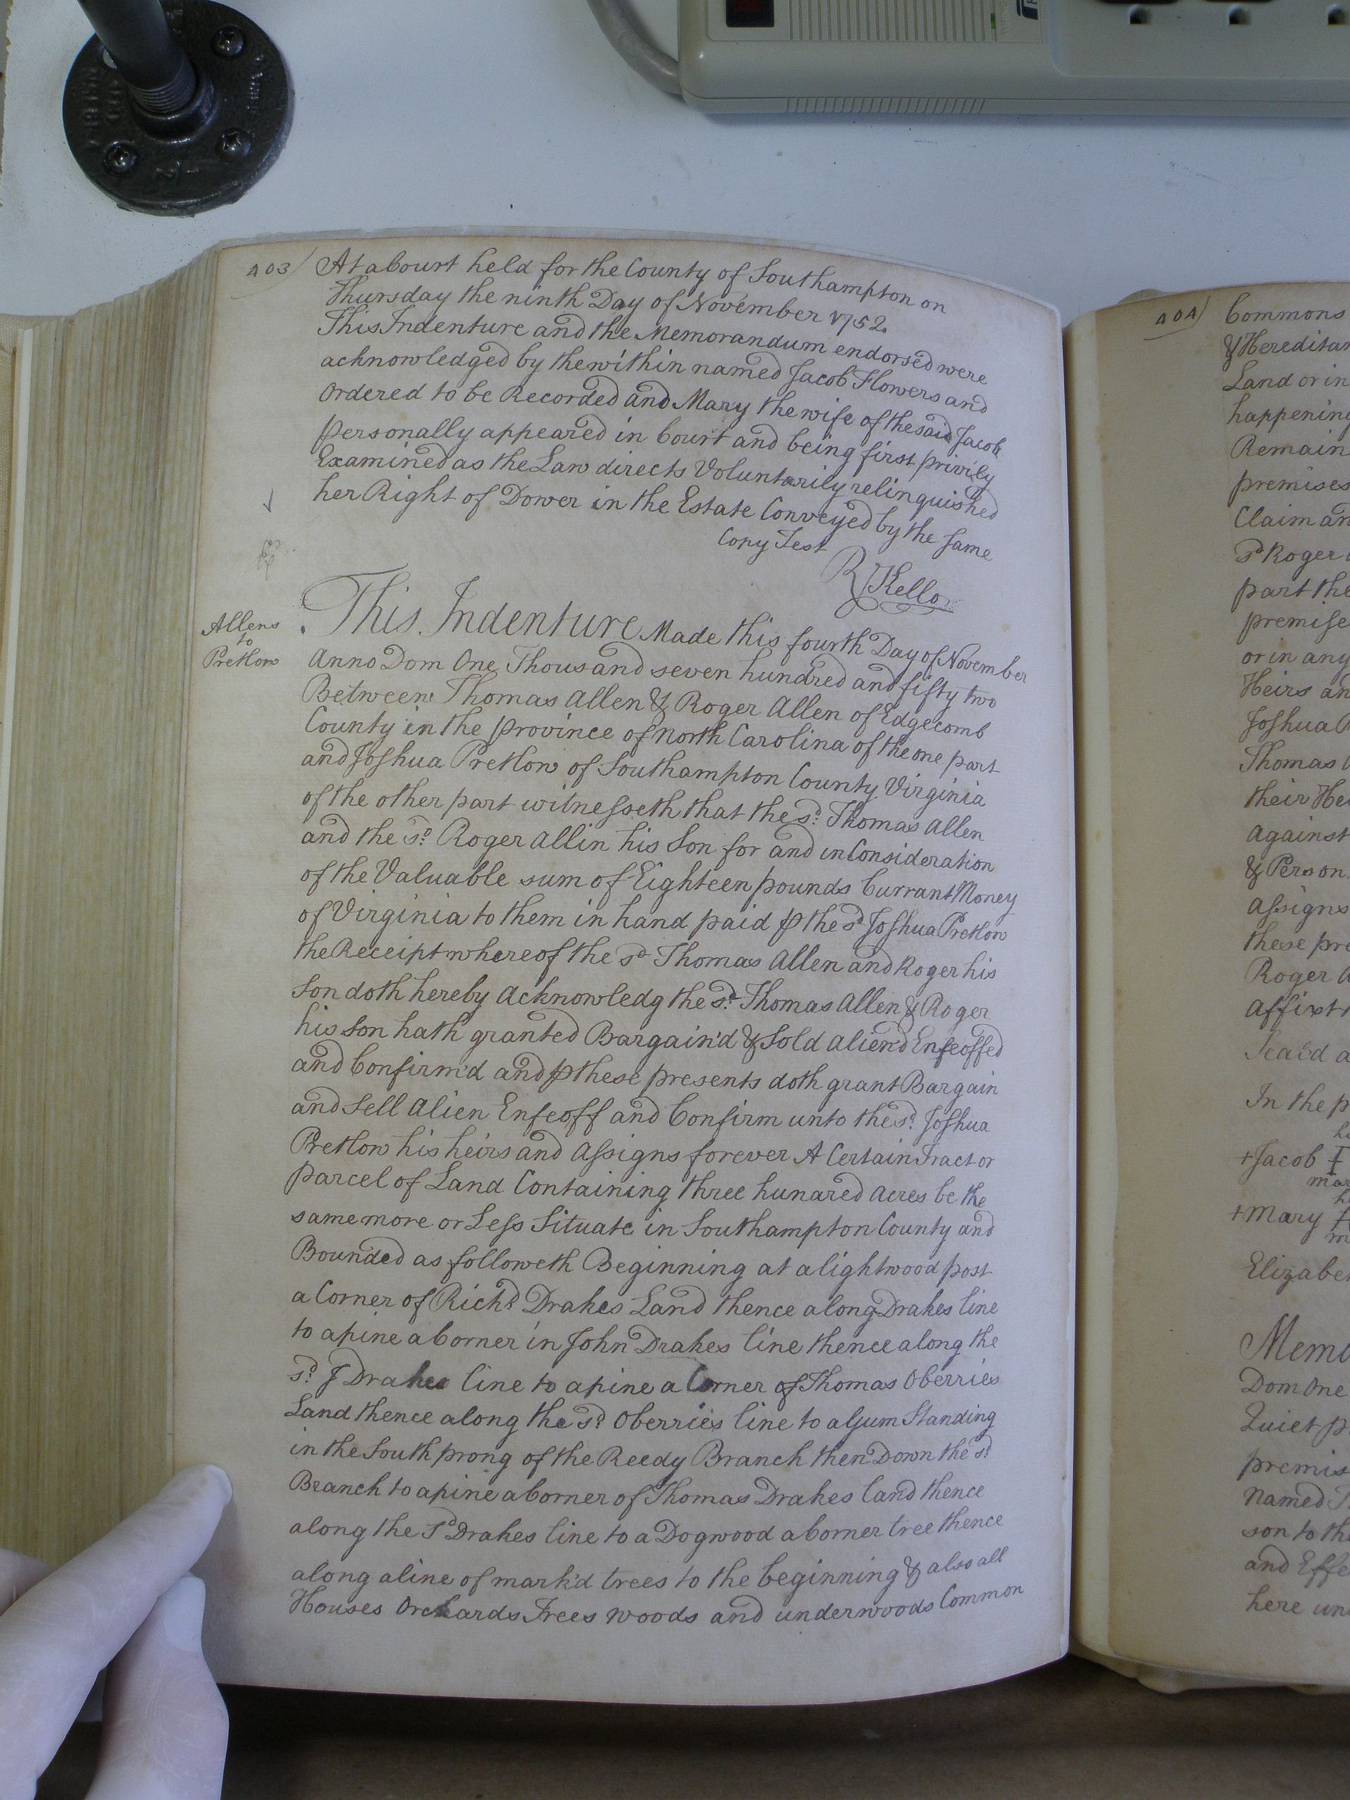 403) At a Court held for the County of Southampton on
Thursday the ninth Day of November 1752.
This Indenture and the Memorandum endorsed were
acknowledged by the within named Jacob Flowers and
Ordered to be Recorded and Mary the wife of the said Jacob
personally appeared in Court and being first privily
Examined as the Law directs Voluntarily relinquished
her Right of Dower in the Estate Conveyed by the same
Copy Test
R Kello
Allens
to
Pretlow
This Indenture Made this fourth Day of November
Anno Dom One Thousand seven hundred and fifty two
Between Thomas Allen & Roger Allen of Edgecomb
County in the province of North Carolina of the one part
and Joshua Pretlow of Southampton County Virginia
of the other part witnesseth that the sd. Thomas Allen
and the sd. Roger Allin his Son for and in Consideration
of the Valuable sum of Eighteen pounds Currant Money
of Virginia to them in hand paid ꝑ the sd Joshua Pretlow
the Receipt whereof the sd Thomas Allen and Roger his
Son doth hereby Acknowledg the sd. Thomas Allen & Roger
his Son hath granted Bargain'd & Sold Aliend Enfeoffed
and Confirm'd and ꝑ these presents doth grant Bargain
and Sell Alien Enfeoff and Confirm unto the sd. Joshua
Pretlow his heirs and Assigns forever A Certain Tract or
parcel of Land Containing three hundred Acres be the
same more or Less Situate in Southampton County and
Bounded as followeth Beginning at a lightwood post
a Corner of Richd. Drakes Land thence along Drakes line
to a pine a Corner in John Drakes line thence along the
sd. J Drakes line to a pine a Corner of Thomas Oberries
Land thence along the sd Oberries line to a Gum Standing
in the South prong of the Reedy Branch then Down the sd
Branch to a pine a Corner of Thomas Drakes land thence
along the sd Drakes line to a Dogwood a Corner tree thence
along a line of mark'd trees to the beginning & also all
Houses Orchards Trees woods and underwoods Common
404) Commons
Land or in
happening
Remain
premises
Claim an
sd Roger
part the
premise
or in any
Heirs an
Joshua
Thomas
their He
against
& Person
Assigns
these pre
Roger
Affixt
Seal'd a
In the p
+Jacob
mar
+Mary
Elizabe
Memo
Dom One
Quiet p
premis
Named
son to th
and Effe
here un